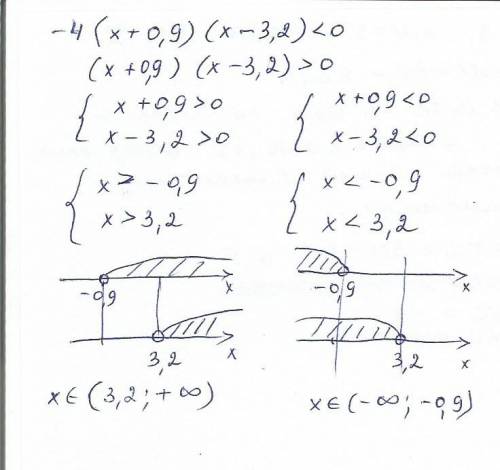 -4 (x+0,9) (x-3,2)<0
(x+0,9) (x-3,2)>0
{ x+0,9>0
x-3,2>0
{ x+0,9<0
x-3,2<0
{ x > -0,9
x > 3,2
{ x < -0,9
x < 3,2
-0,9 x
3,2 x
-0,9 x
3,2 x
x∈(3,2;+∞)
x∈(-∞;-0,9)